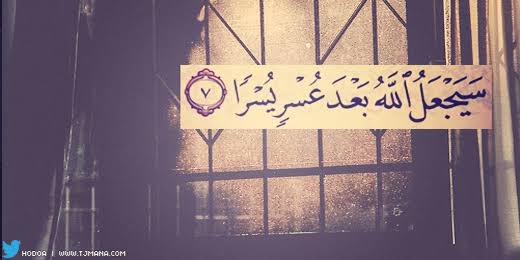 سَيَجْعَلُ ٱللَّهُ بَعْدَ عُسْرٍ يُسْرًا ٧
HODOA | WWW.TJMANA.COM